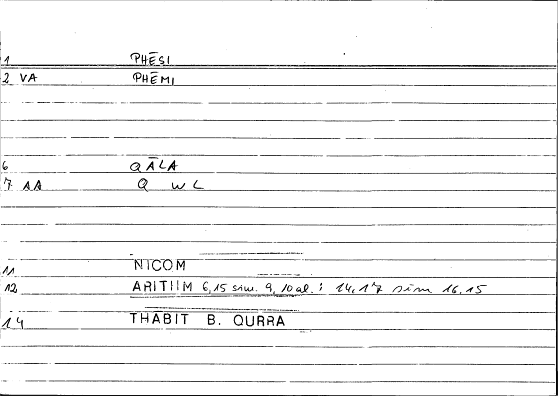 1 PHĒSI
2 VA PHĒMI
6 QĀLA
7 AA Q W L
11 NICOM
12 ARITIIM 6,15 sim. 9, 10 al. ; 14,17 sim 16.15
14 THABIT B. QURRA